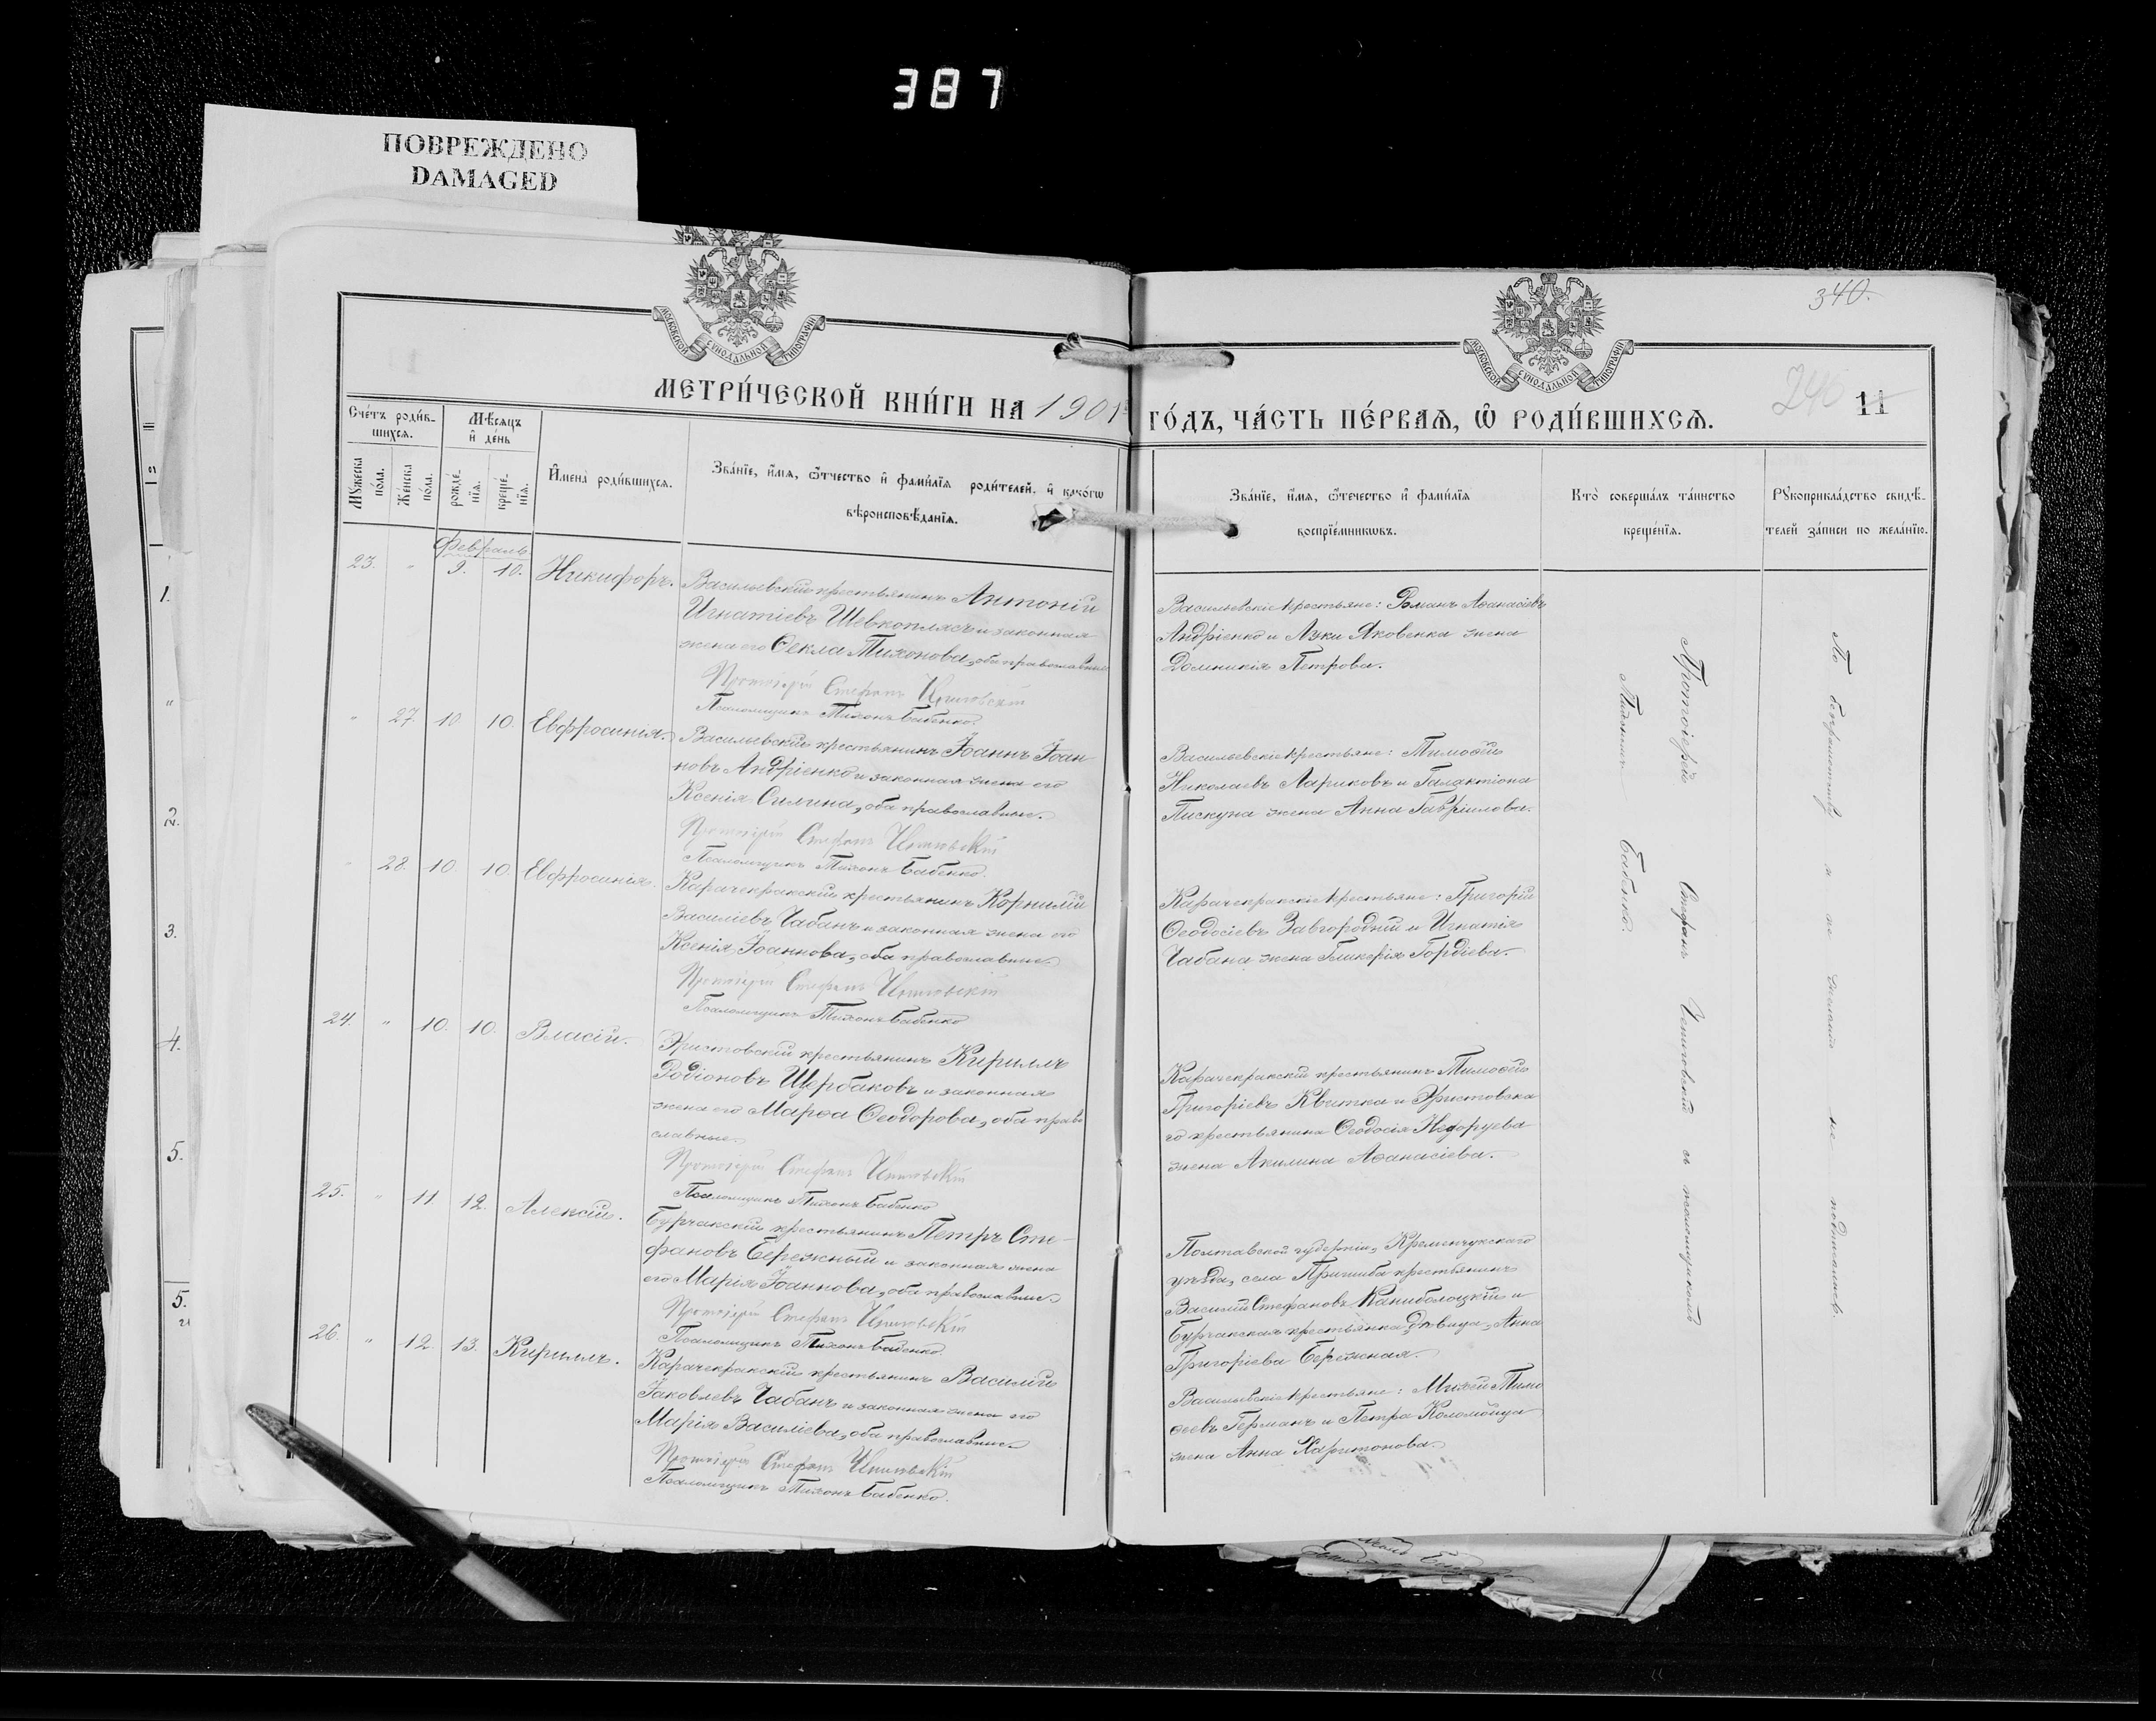 387
ПОВРЕЖДЕНО
DAMAGED
340.
МОСКОВСКОЙ СѴНОДАЛЬНОЙ ТИПОГРАФІИ
МОСКОВСКОЙ СѴНОДАЛЬНОЙ ТИПОГРАФІИ
240 11
МЕТРИ́ЧЕСКОЙ КНИ́ГИ НА 1901 ГО́ДЪ, ЧА́СТЬ ПЕ́РВАѦ, Ѡ҆ РОДИ́ВШИХСѦ.
Сче́тъ роди́в-
шихсѧ.
Мꙋ́жеска по́ла.
Же́нска по́ла.
Мѣ́сѧцъ
и҆ де́нь
рожде́-
нїѧ.
креще́-
нїѧ.
И҆мена̀ роди́вшихсѧ.
Зва́нїе, и҆́мѧ, ѻ҆́тчество и҆ фами́лїѧ роди́телей, и҆ како́гѡ
вѣроисповѣ́данїѧ.
Зва́нїе, и҆́мѧ, ѻ҆те́чество и҆ фами́лїѧ
воспрїе́мникѡвъ.
Кто̀ соверша́лъ та́инство
креще́нїѧ.
Рꙋкоприкла́дство свидѣ́-
телей за́писи по жела́нїю.
Февраль
23. " 9. 10. Никифоръ.
Васильевскій крестьянинъ Антоній
Игнатіевъ Шевкоплясъ и законная
жена его Ѳекла Тихонова, оба православные
Протоіерей Стефанъ
Псаломщикъ Тихонъ Бабенко.
Васильевскіе крестьяне: Романъ Аѳанасіевъ
Андріенко и Луки Яковенка жена
Домникія Петрова.
" 27. 10 10. Евфросинія.
Васильевскій крестьянинъ Іоаннъ Іоан-
новъ Андріенко и законная жена его
Ксенія Силина, оба православные.
Протоіерей Стефанъ
Псаломщикъ Тихонъ Бабенко.
Васильевскіе крестьяне: Тимоѳей
Николаевъ Лариковъ и Галактіона
Пискуна жена Анна Гавріилова.
" 28. 10 10. Евфросинія.
Карачекракскій крестьянинъ Корнилій
Василіевъ Чабанъ и законная жена его
Ксенія Іоаннова, оба православные.
Протоіерей Стефанъ
Псаломщикъ Тихонъ Бабенко
Карачекракскіе крестьяне: Григорій
Ѳеодосіевъ Завгородній и Игнатія
Чабана жена Гликерія Гордіева.
24. " 10. 10. Власій.
Эристовскій крестьянинъ Кириллъ
Родіоновъ Щербаковъ и законная
жена его Марѳа Ѳеодорова, оба право
славные.
Протоіерей Стефанъ
Псаломщикъ Тихонъ Бабенко
Карачекракскій крестьянинъ Тимоѳей
Григоріевъ Квитка и Эристовска
го крестьянина Ѳеодосія
жена Акилина Аѳанасіева.
25. " 11 12. Алексій.
Бурчакскій крестьянинъ Петръ Сте-
фановъ Бережный и законная жена
его Марія Іоаннова, оба православные
Протоіерей Стефанъ
Псаломщикъ Тихонъ Бабенко.
Полтавской губерніи, Кременчугскаго
уѣзда, села Пришиба крестьянинъ
Василій Стефановъ Каниболоцкій и
Бурчакская крестьянка дѣвица, Анна
Григоріева Бережная.
26. " 12. 13. Кириллъ.
Карачекракскій крестьянинъ Василій
Іаковлевъ Чабанъ и законная жена его
Марія Василіева, оба православные.
Протоіерей Стефанъ
Псаломщикъ Тихонъ Бабенко.
Васильевскіе крестьяне: Михей Тимо
ѳеевъ Германъ и Петра Коломойца
жена Анна Харитонова.
Протоіерей Стефанъ съ псаломщикомъ
Тихономъ Бабенко.
По безграмотству а не подписались.
1.
"
2.
3.
4.
5.
5.